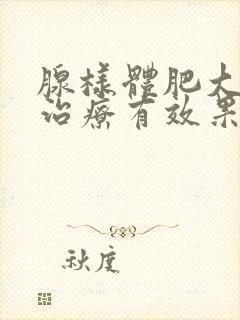 腺樣體肥大
治療有效果
秋度